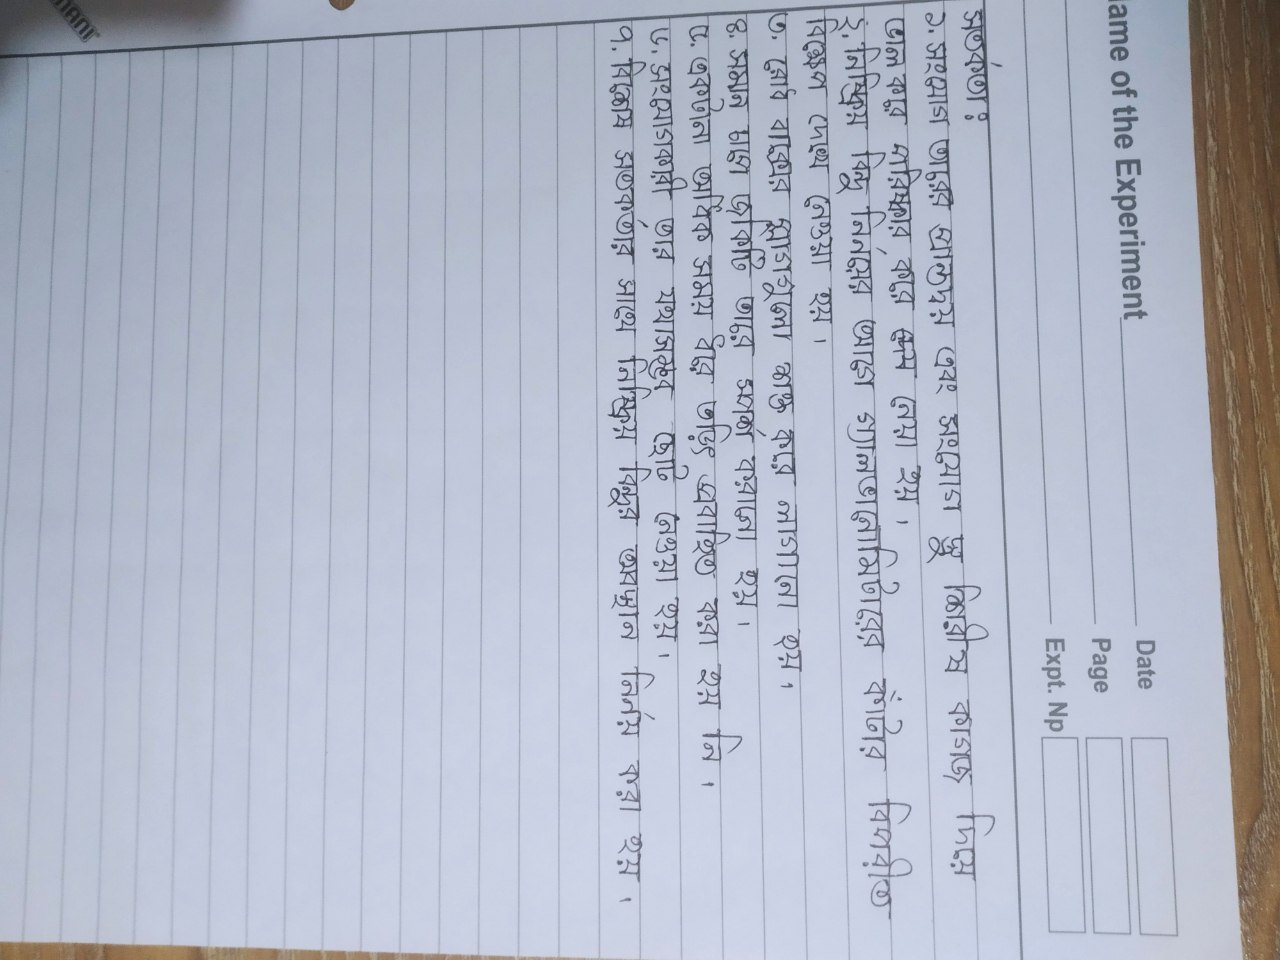 Name of the Experiment
Date
Page
Expt. Np
সতর্কতা :
১. সংযোগ তারের প্রান্তদয় এবং সংযোগ স্ক্রু শিরীষ কাগজ দিয়ে
ভাল করে পরিষ্কার করে নেয়া হয়।
২. নিষ্ক্রিয় বিন্দু নির্নয়ের আগে গ্যালভানোমিটারের কাঁটার বিপরীত
বিক্ষেপ দেখে নেওয়া হয়।
৩. রোধ বাক্সের প্লাগগুলো শক্ত করে লাগানো হয়।
৪. সমান ভাবে জকিটি তারে স্পর্শ করানো হয়।
৫. একটানা অধিক সময় ধরে তড়িৎ প্রবাহিত করা হয় নি।
৬. সংযোগকারী তার যথাসম্ভব ছোট নেওয়া হয়।
৭. বিশেষ সতকর্তার সাথে নিষ্ক্রিয় বিন্দুর অবস্থান নির্নয় করা হয়।